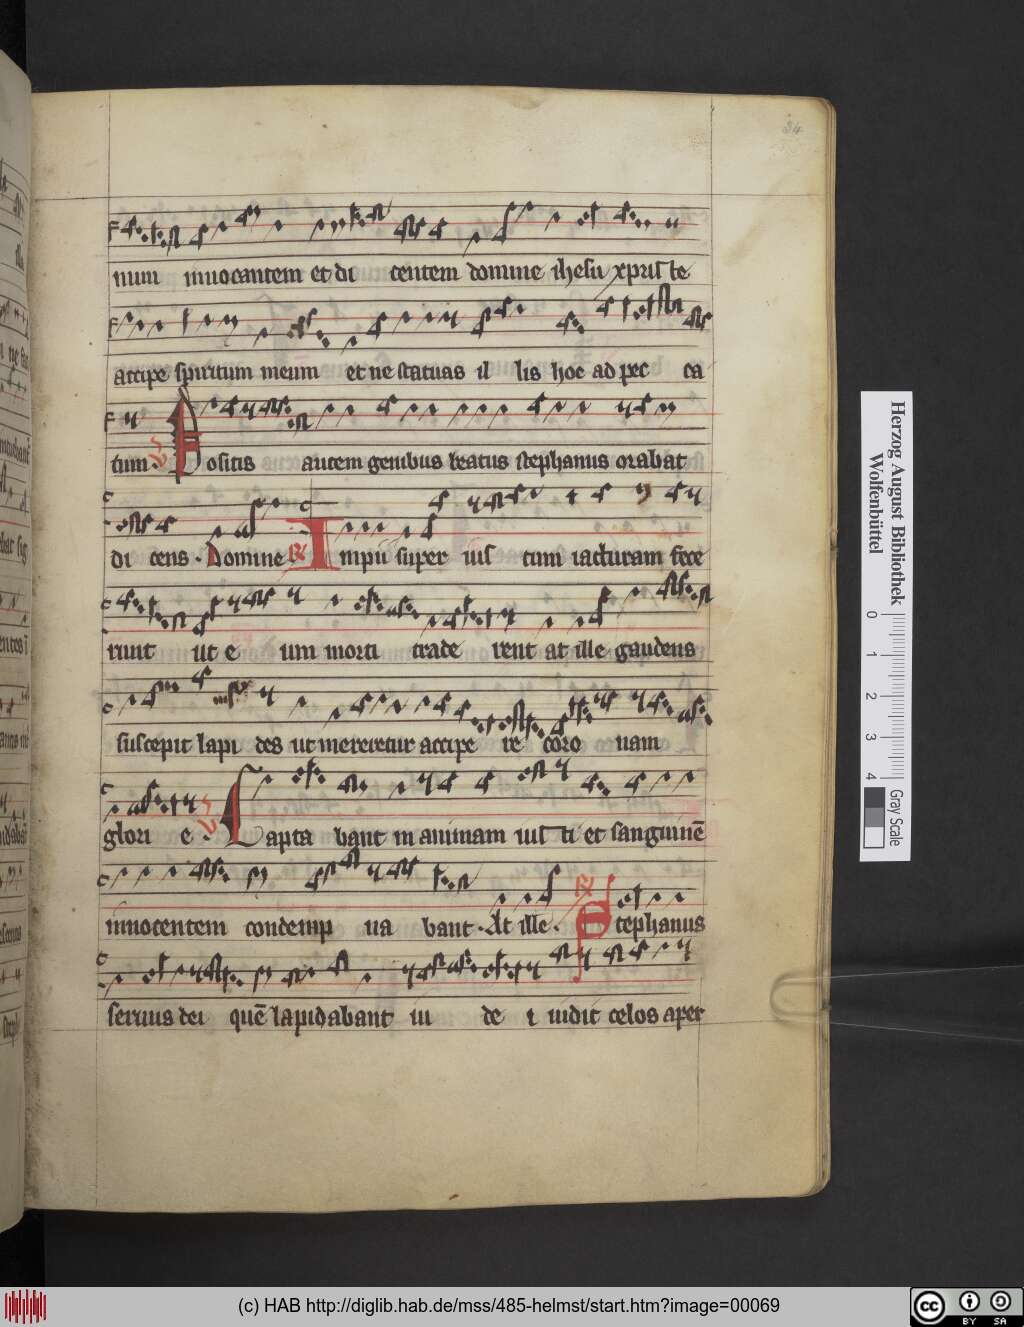 34
num innocantem et di centem domine ihesu xpriste
accipe spiritum meum et ne statuas il lis hoc ad pec ca
tum. V Positis autem genibus beatus stephanus orabat
di cens. Domine R Impii super iust tum iacturam fece
runt ut e um morti trade rent at ille gaudens
suscepit lapi des ut mereretur accipe re coro nam
glori e. V Capta bant in animam iust ti et sanguinē
innocentem condemp na bant. At ille. R Stephanus
seruus dei quē lapidabant iu de i uidit celos aper
Herzog August Bibliothek
Wolfenbüttel
0 1 2 3 4
Gray Scale
(c) HAB http://diglib.hab.de/mss/485-helmst/start.htm?image=00069
cc BY SA